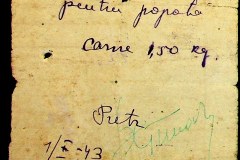 pentru popota
carne 1,50 kg.
Pietr
1/X-43